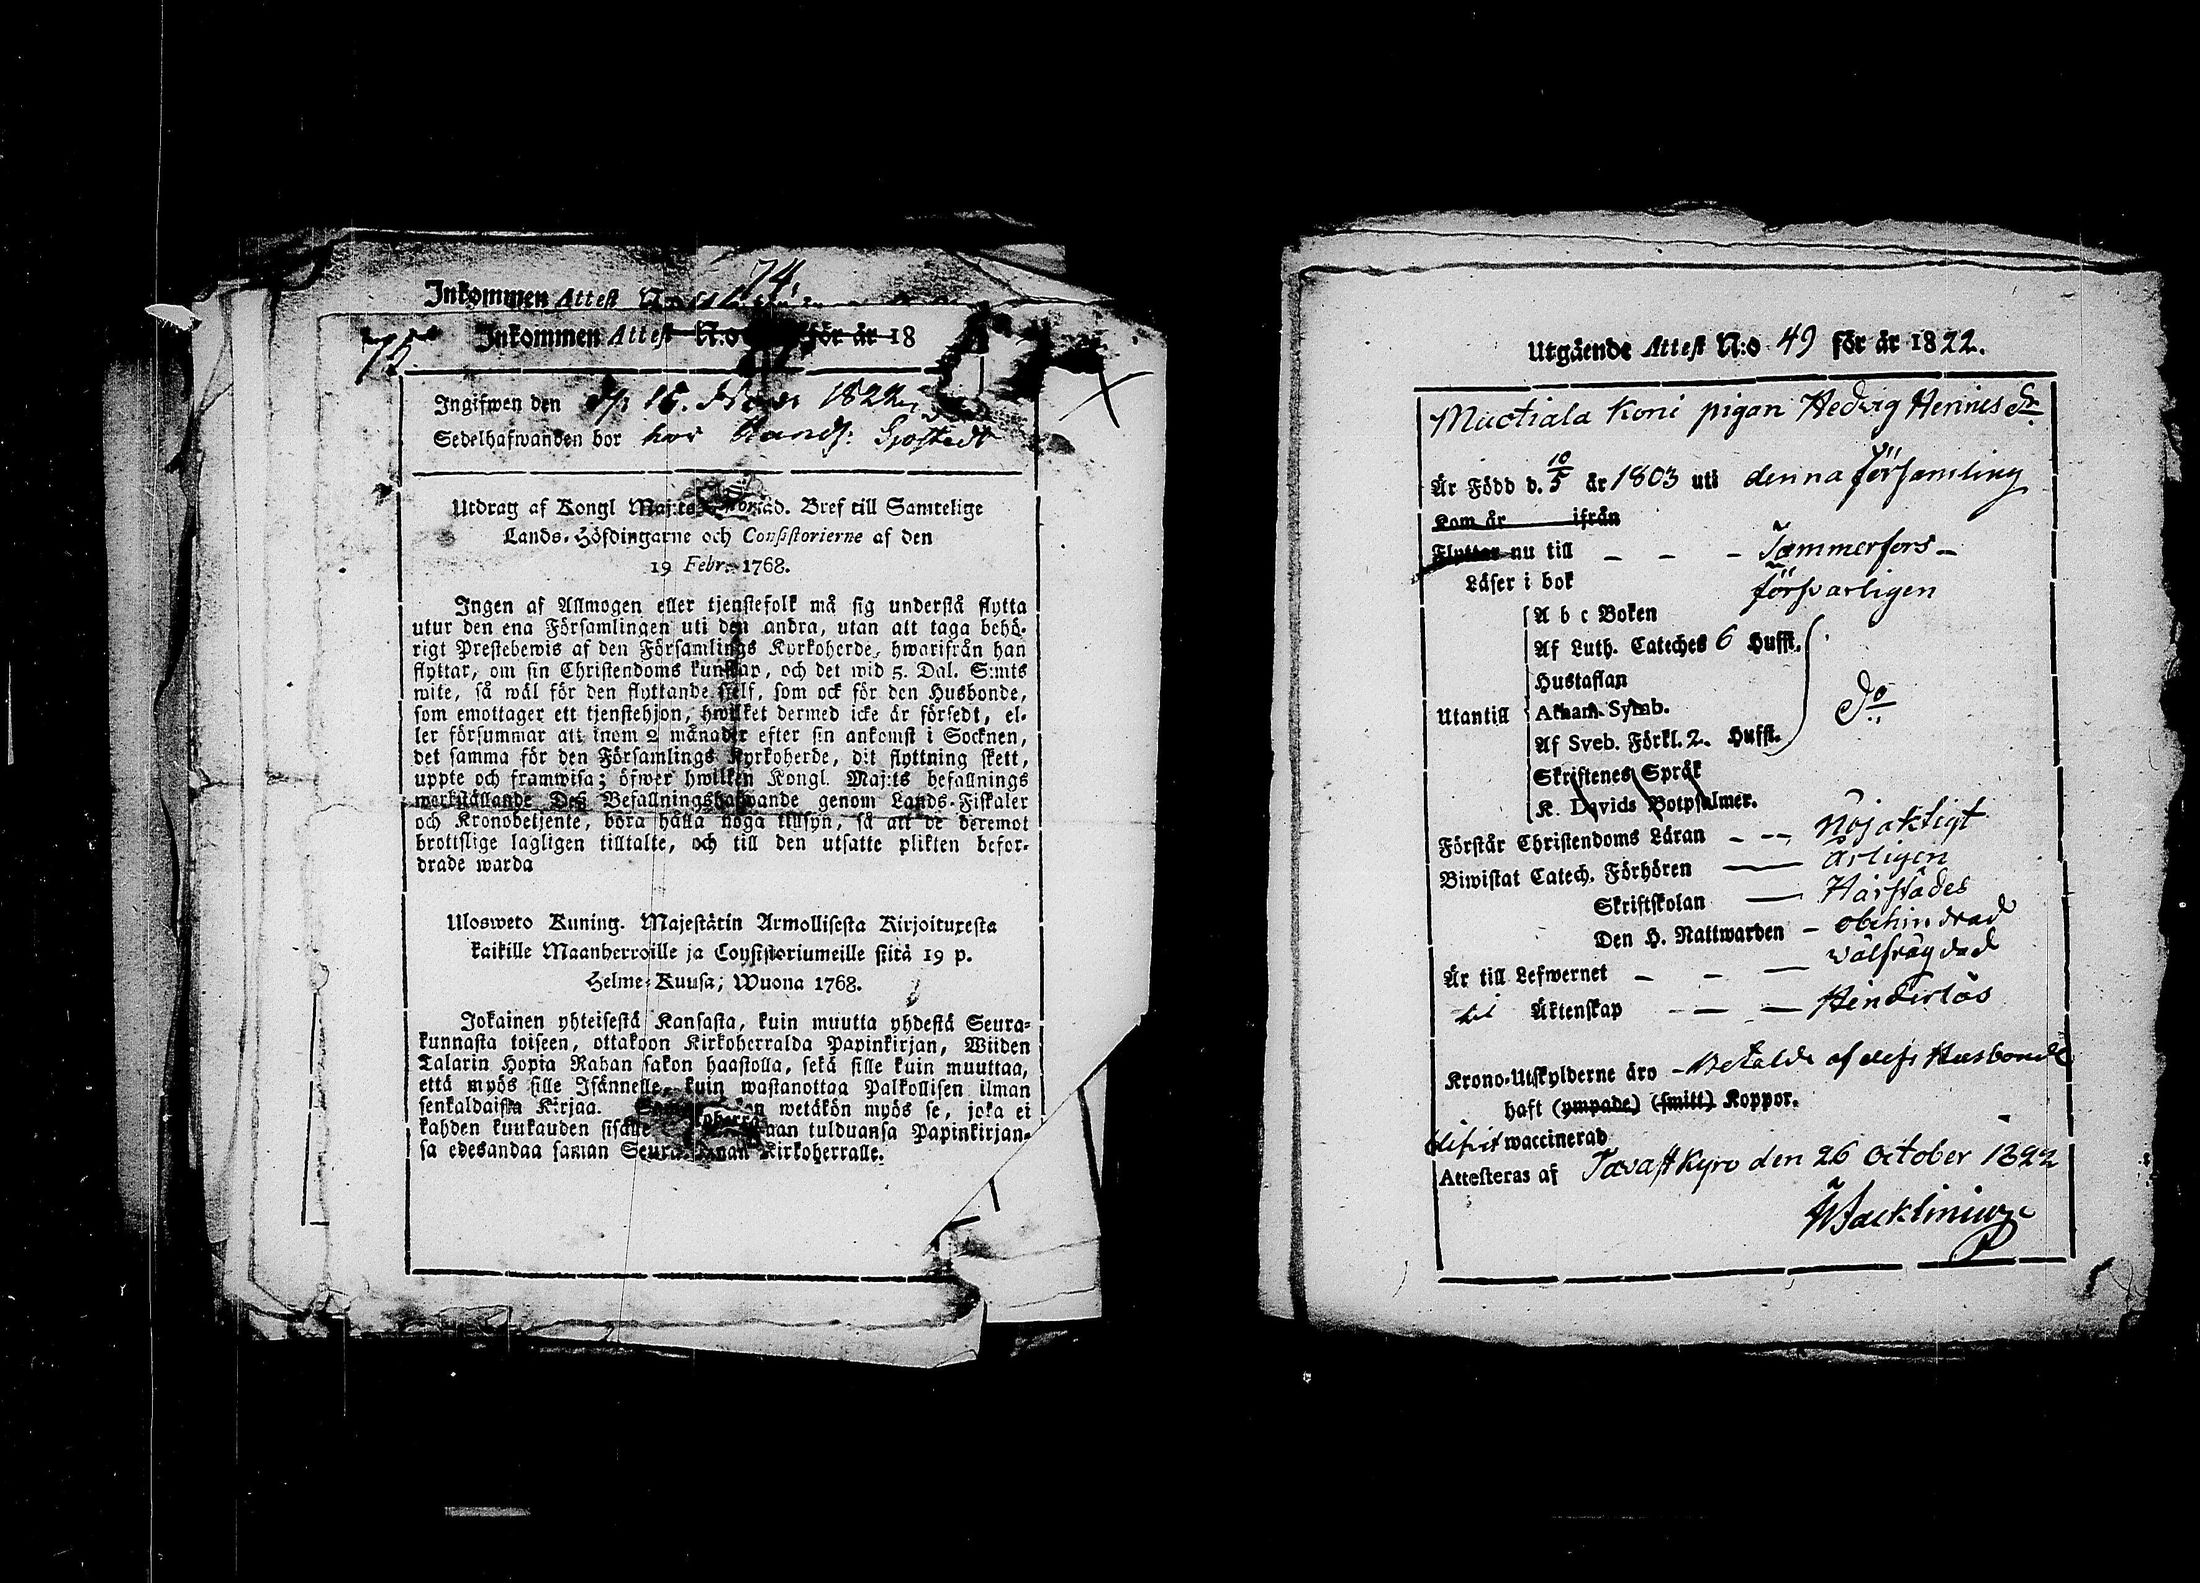 74.
Inkommen Attest N:o
75 Inkommen Attest N:o för år 18
Ingifwen den 16. 1822
Sedelhafwanden bor hos Sjöstedt
Utdrag af Kongl Maj:ts Bref till Samtelige
Lands-Höfdingarne och Consistorierne af den
19 Febr. 1768.
Ingen af Allmogen eller tjenstefolk må sig understå flytta
utur den ena Församlingen uti den andra, utan att taga behö-
rigt Prestebewis af den Församlings Kyrkoherde, hwarifrån han
flyttar, om sin Christendoms kunskap, och det wid 5. Dal. S:mts
wite, så wäl för den flyttande sjelf, som ock för den Husbonde,
som emottager ett tjenstehjon, hwilket dermed icke är försedt, el-
ler försummar att inom 2 månader efter sin ankomst i Socknen,
det samma för den Församlings Kyrkoherde, dit flyttning skett,
uppte och framwisa; öfwer hwilken Kongl. Maj:ts befallnings
werkställande Deß Befallningshafwande genom Lands-Fiskaler
och Kronobetjente, böra hålla noga tillsyn, så att de deremot
brottslige lagligen tilltalte, och till den utsatte plikten befor-
drade warda
Ulosweto Kuning. Majestätin Armollisesta Kirjoituxesta
kaikille Maanherroille ja Consistoriumeille siitä 19 p.
Helme-Kuusa, Wuona 1768.
Jokainen yhteisestä Kansasta, kuin muutta yhdestä Seura-
kunnasta toiseen, ottakoon Kirkoherralda Papinkirjan, Wiiden
Talarin Hopia Rahan sakon haastolla, sekä sille kuin muuttaa,
että myös sille Isännelle, kuin wastanottaa Palkollisen ilman
senkaldaista Kirjaa. wetäkön myös se, joka ei
kahden kuukauden sisälle tulduansa Papinkirjan-
sa edesandaa saman Seurakunnan Kirkoherralle.
Utgående Attest N:o 49 för år 1822.
Muotiala Koni pigan Hedvig Henricsdr
Är Född d. 10/5 år 1803 uti denna församling
Kom år ifrån
Flyttar nu till - - - Tammerfors -
Läser i bok försvarligen
A b c Boken
Af Luth. Cateches 6 Hufst.
Hustaflan
Utantill Athan. Symb. do
Af Sveb. Förkl. 2. Hufst.
Skriftenes Språk
K. Davids Botpsalmer.
Förstår Christendoms Läran - - - Nöjaktigt
Biwistat Catech. Förhören - årligen
Skriftskolan - Härstädes
Den H. Nattwarden - obehindrad
Är till Lefwernet - - - välfrägdad
til Äktenskap - - - Hinderlös
Krono-Utskylderne äro - Betalde af dess Husbonde
haft (ympade) (smitt) Koppor.
blifvit waccinerad
Attesteras af Tavastkyro den 26 October 1822
Wacklin